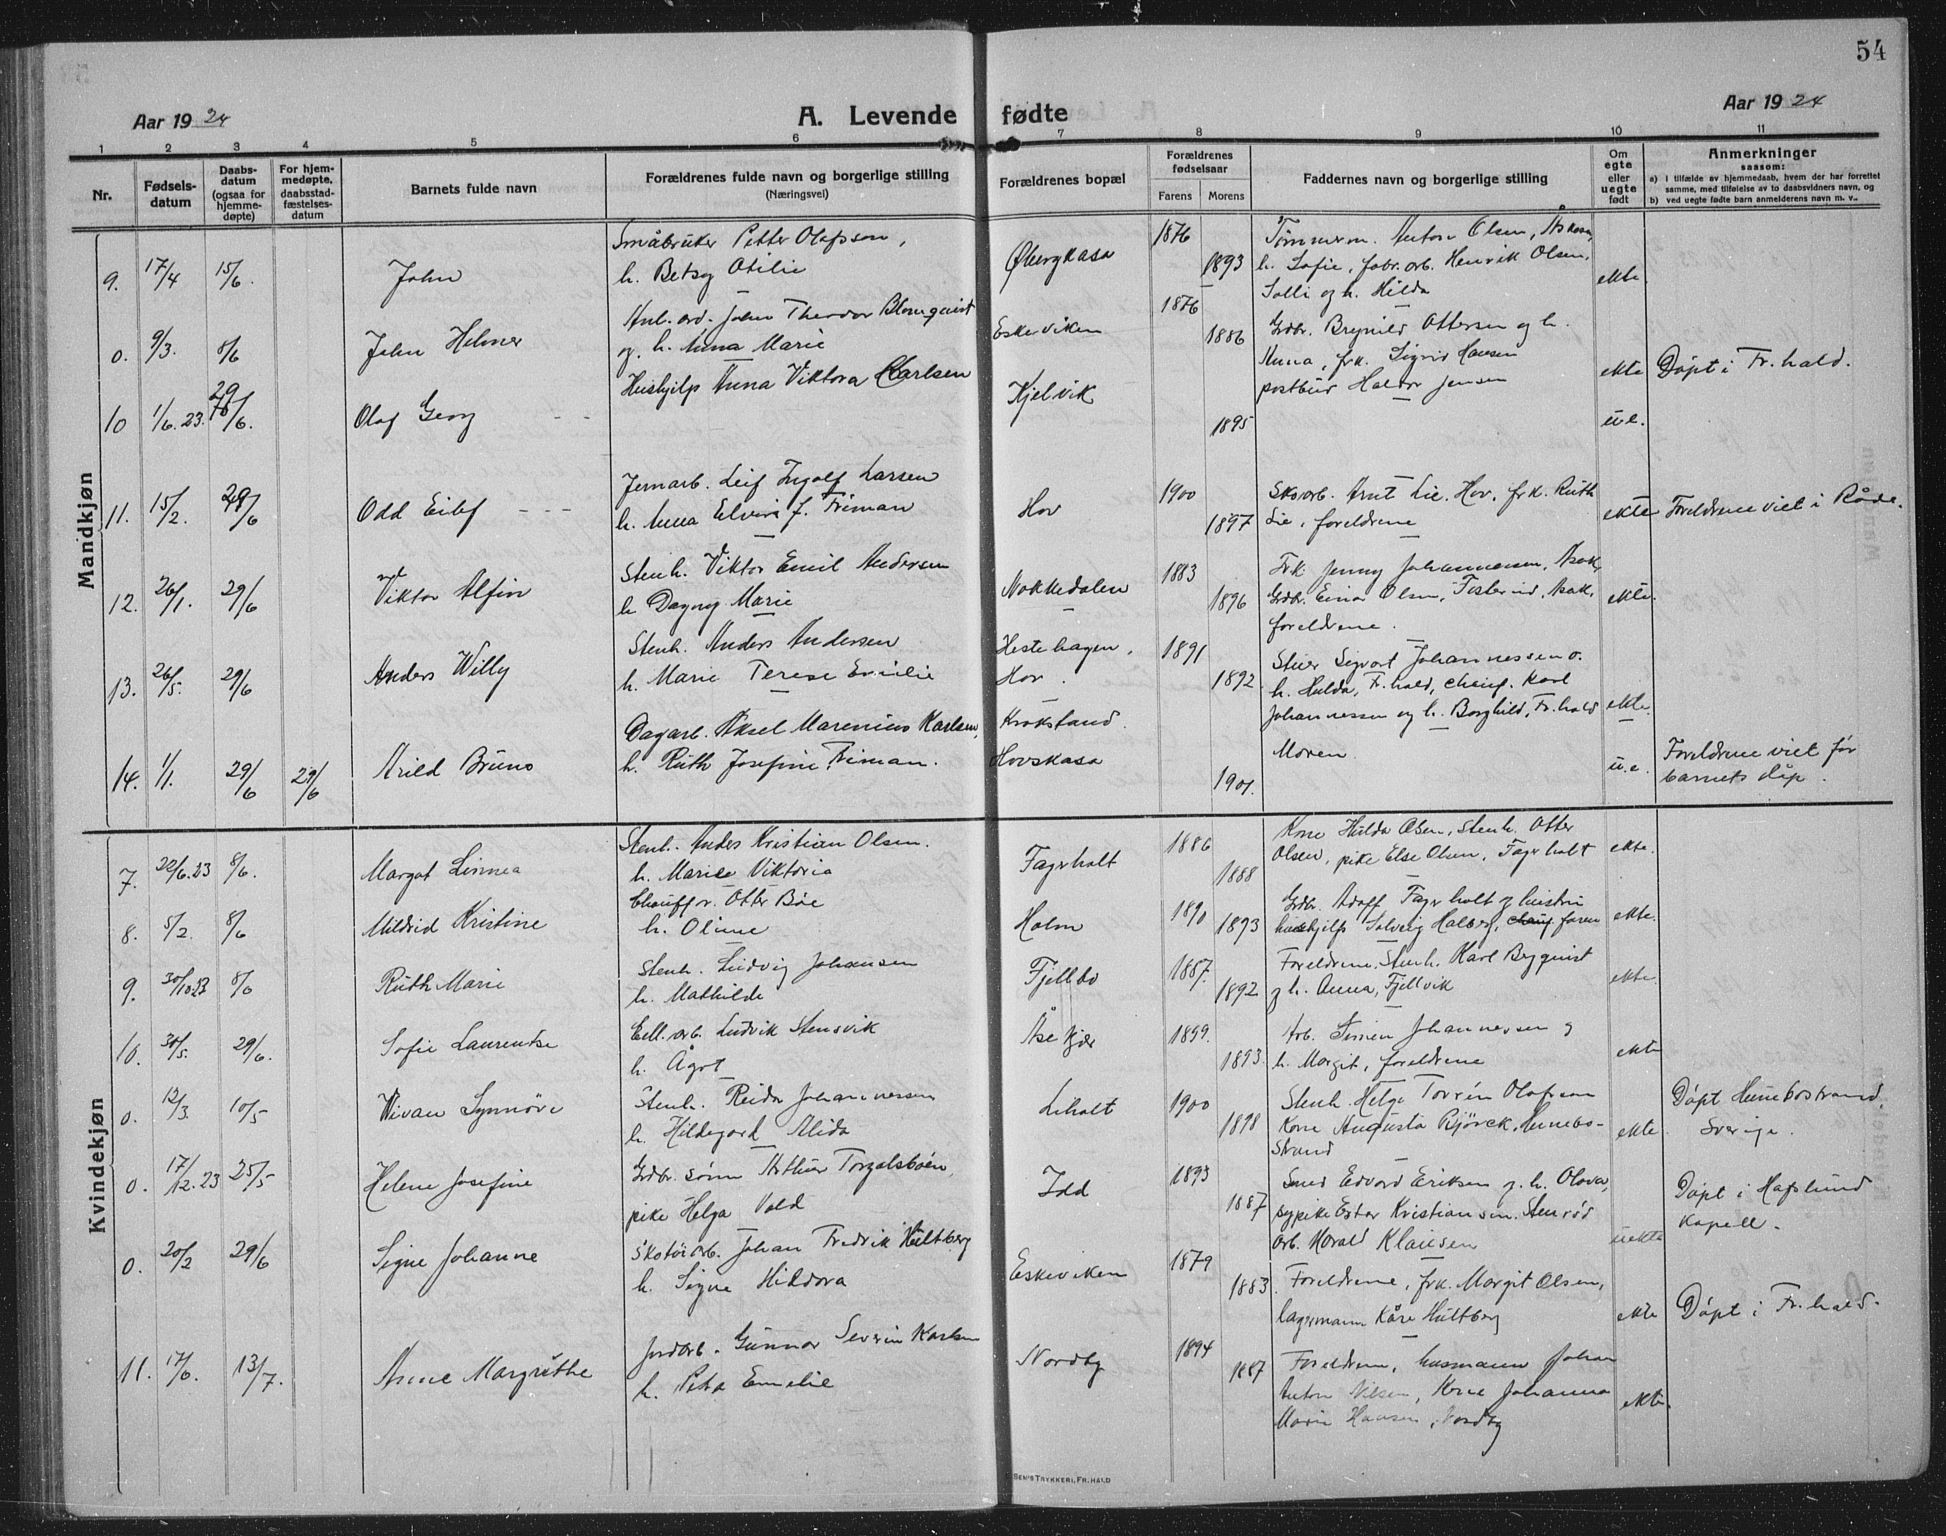 54
Aar 1924
A. Levende fødte
Aar 1924
1 2 3 4 5 6 7 8 9 10 11
Nr.
Fødsels-
datum
Daabs-
datum
(ogsaa for
hjemme-
døpte)
For hjem-
medøpte,
daabsstad-
fæstelses-
datum
Barnets fulde navn
Forældrenes fulde navn og borgerlige stilling
(Næringsvei)
Forældrenes bopæl
Forældrenes
fødselsaar
Farens Morens
Faddernes navn og borgerlige stilling
Om
egte
eller
uegte
født
Anmerkninger
saasom:
a) i tilfælde av hjemmedaab, hvem der har forrettet
samme, med tilføielse av to daabsvidners navn, og
b) ved uegte fødte barn anmelderens navn m. v..
Mandkjøn
9. 17/4 15/6. John
Småbruker Petter Olafsson,
h. Betsy Otilie
Øbergkasa 1876 1893
Tømmerm. Anton Olsen,
h. Sofie, fabr.arb. Henrik Olsen,
Solli og h. Hilda
ekte
0. 9/3. 8/6 John Helmer
Anl. arb. John Theodor Blomqvist
og h. Anna Marie
Eskeviken 1876 1886
Grdbr. Brynild Ottersen og h.
Anna, frk. Sigrid Hansen
postbud Haldor Jensen
ekte Døpt i Fr.hald.
10 1/6.23. 29/6. Olaf Georg
Hushjelp Anna Viktora Charlsen
Kjelvik 1895
u.e.
11. 15/2. 29/6 Odd Eilef
Jernarb. Leif Ingolf Larsen
h. Anna Elvira f. Friman
Hov 1900 1897
Skoarb. Arnt Lie, Hov, frk. Ruth
Lie, foreldrene
ekte Foreldrene viet i Råde.
12. 26/1. 29/6 Viktor Alfin
Stenh. Viktor Emil Andersen
h. Dagny Marie
Nokkedalen 1883 1896
Frk. Jenny Johannessen, Asak,
Grdbr. Einar Olsen, Asak,
foreldrene.
ekte.
13. 26/5. 29/6 Anders Willy
Stenh. Anders Andersen
h. Marie Terese Emilie
Hestehagen,
Hov. 1891 1892
Sigvart Johannessen o.
h. Hulda, Fr.hald, chauf. Karl
Johannessen og h. Borghild, Fr.hald
ekte.
14. 1/1. 29/6 29/6 Arild Bruno
Dagarb. Aksel Marenius Karlsen,
h. Ruth Josefine Friman.
Krokstand.
Hovskasa 1901.
Moren.
u.e.
Foreldrene viet før
barnets dåp.
Kvindekjøn
7. 22/6.23 8/6. Margot Linnea
Stenh. Anders Kristian Olsen.
h. Marie Viktoria
Fagerholt 1886 1888
Kone Hulda Olsen, Stenh. Otter
Olsen, pike Else Olsen, Fagerholt
ekte.
8. 5/2. 8/6 Mildrid Kristine
Chauffør. Otter Bøe
h. Oline
Holm 1890 1893
Grdbr. Adolf Fagerholt og hustru
hushjelp Solveig Halberg, chauf faren
ekte.
9. 30/10.23 8/6 Ruth Marie
Stenh. Ludvig Johansen
h. Mathilde
Fjellbo 1887. 1892
Foreldrene, Stenh. Karl Bergqvist
og h. Anna, Fjellvik
ekte.
10. 30/5. 29/6. Sofie Laurentse
Cell. arb. Ludvik Stensvik
h. Ågot
1899. 1893.
Arb. Simen Johannessen og
h. Margit, foreldrene
ekte
0. 12/3 10/5 Vivan Synnøve
Stenh. Reidar Johannessen
h. Hildegard Alida
Liholt 1900 1898
Stenh. Helge Torvin Olofsson
Kone Augusta Björck, Hunnebo-
strand
ekte
Døpt Hunnebostrand,
Sverige.
0. 17/12.23 25/5 Helene Josefine
Grdbr. sønn Arthur Torgalsbøen,
pike Helga Vold
Idd 1893 1887
Smed Edvard Eriksen og h. Olava,
sypike Ester Kristiansen, Stenrød
Arb. Harald Klausen
uekte
Døpt i Hafslund
Kapell.
0. 20/2 29/6 Signe Johanne
Skotøiarb. Johan Fredrik Hultberg
h. Signe Hildora
Eskeviken 1879 1883
Foreldrene, frk. Margit Olsen,
lagermann Kåre Hultberg
ekte Døpt i Fr.hald.
11. 17/6. 13/7. Anne Margrethe
Jordarb. Gunnar Severin Karlsen
h. Petra Emelie
Nordby 1894 1887
Foreldrene, husmann Johan
Anton Nilsen, Kone Johanna
Marie Hansen, Nordby
ekte.
SEN'S TRYKKERI, FR.HALD